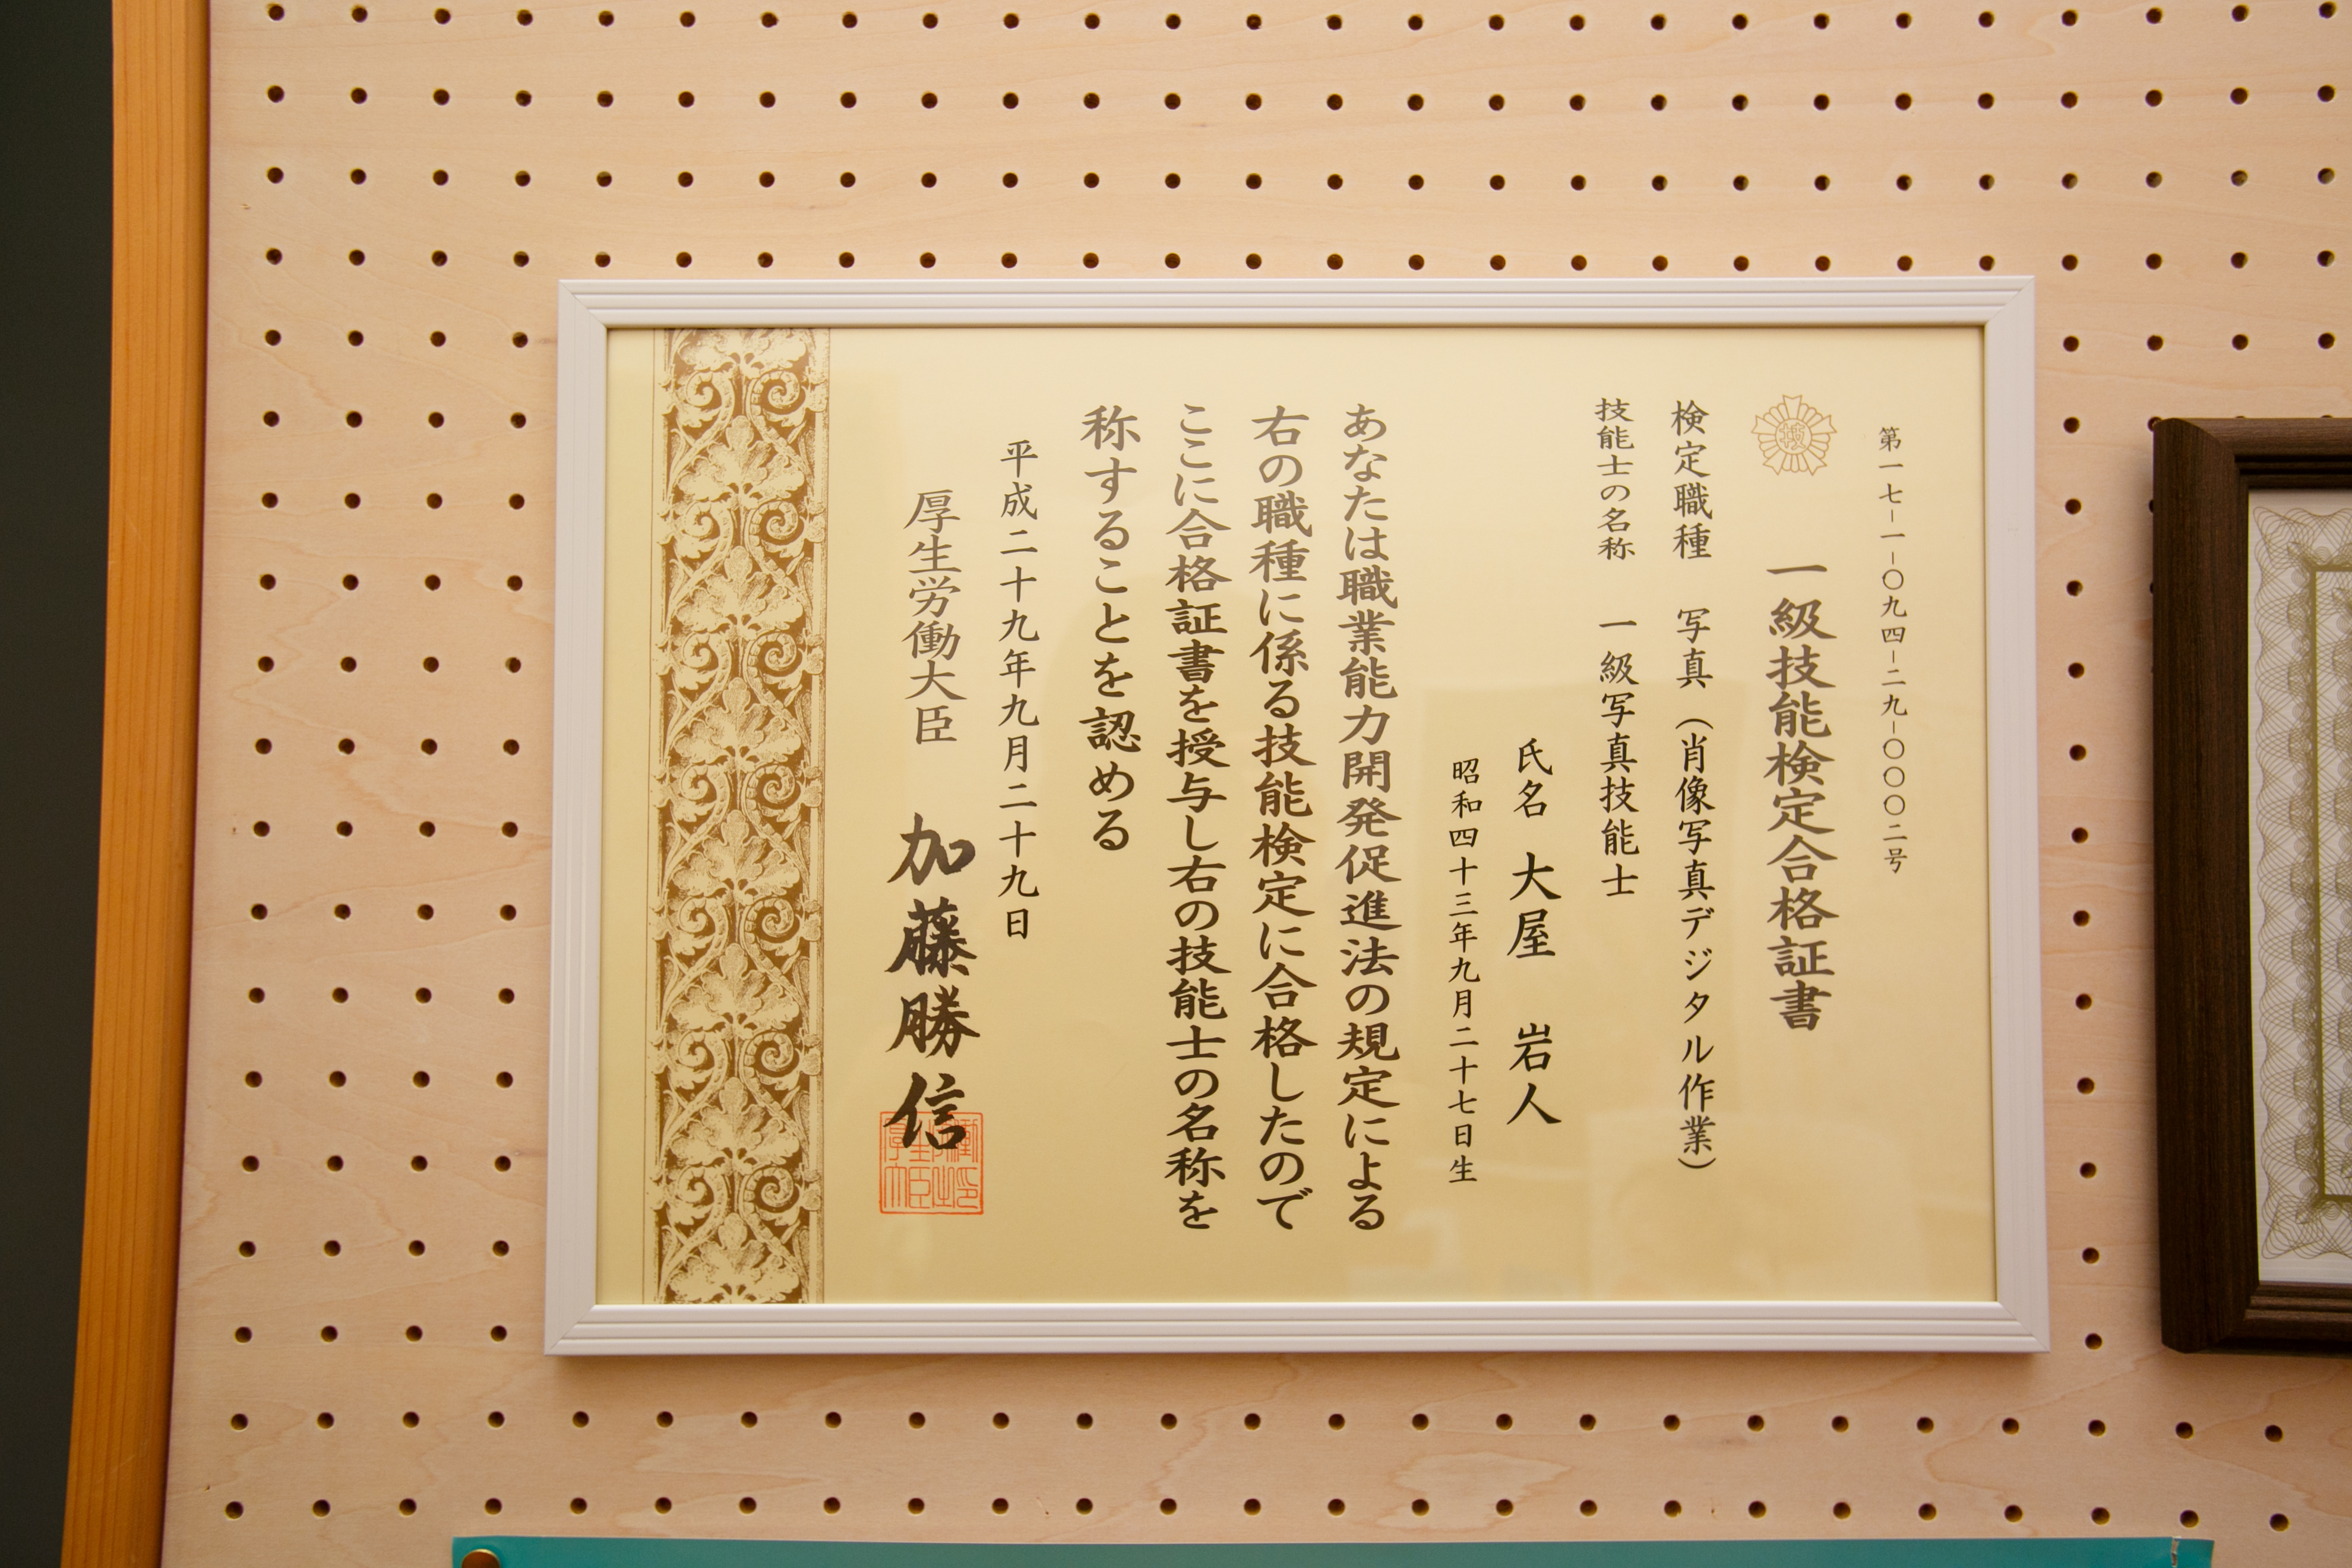 第一七-一-〇九四-二九-〇〇〇二号
技
一級技能検定合格証書
検定職種 写真（肖像写真デジタル作業）
技能士の名称 一級写真技能士
氏名 大屋 岩人
昭和四十三年九月二十七日生
あなたは職業能力開発促進法の規定による
右の職種に係る技能検定に合格したので
ここに合格証書を授与し右の技能士の名称を
称することを認める
平成二十九年九月二十九日
厚生労働大臣 加藤勝信